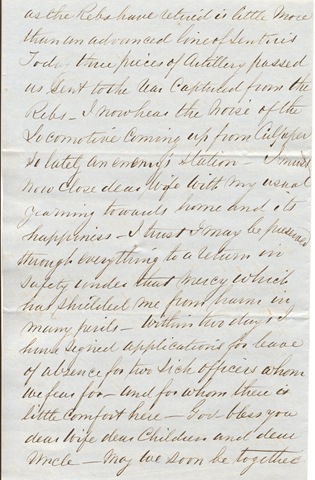 as the Rebs have retired is little more
than an advanced line of Sentries
Today three pieces of Artillery passed
us Sent to the rear Captured from the
Rebs - I now hear the noise of the
Locomotive coming up from Culpeper
so lately an enemy's station - I must
now close dear Wife with my usual
yearning towards home and its
happiness - I trust I may be preserved
through everything to a return in
safety under that mercy which
has shielded me from harm in
many perils - Within two days I
have signed applications for leave
of absence for two sick officers whom
we fear for - and for whom there is
little comfort here - God bless you
dear Wife dear Children and dear
Uncle - May we soon be together